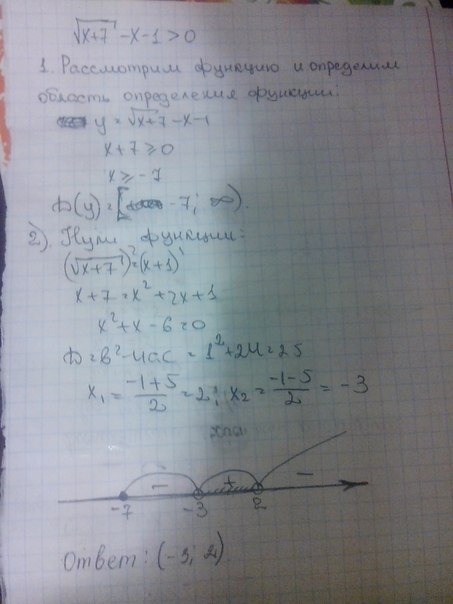 √x+7 -x-1>0
1. Рассмотрим функцию и определим
область определения функции:
y = √x+7 -x-1
x+7 ≥ 0
x ≥ -7
D(y) = [ -7; ∞).
2). Нули функции:
(√x+7)² = (x+1)²
x+7 = x²+2x+1
x²+x-6=0
D=b²-4ac = 1²+24=25
x₁ = -1+5/2 = 2; x₂ = -1-5/2 = -3
- + -
-7 -3 2
Ответ: (-3; 2)